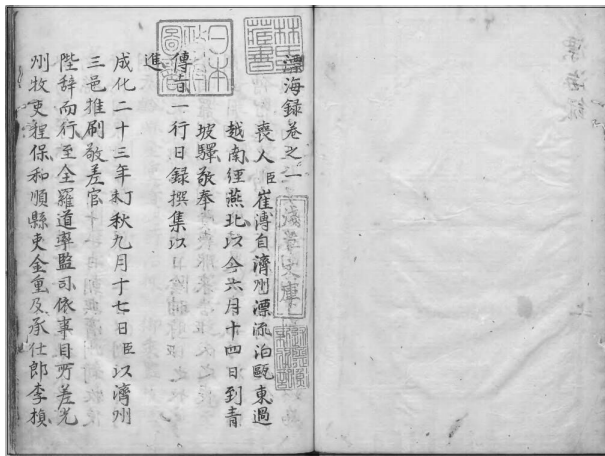 漂海録卷之一
喪人臣崔溥自濟州漂流泊甌東過
越南經燕北以今六月十四日到青
坡驛敬奉
傳旨一行日録撰集以
進
成化二十三年丁未秋九月十七日臣以濟州
三邑推刷敬差官
陛辭而行至全羅道率監司依事目所差光
州牧吏程保和順縣吏金重及承仕郎李楨
林氏藏書
日本政府圖書
淺草文庫